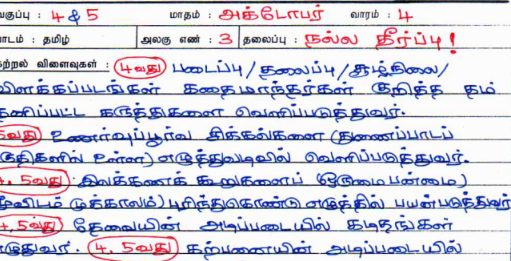 வகுப்பு : 4 & 5 மாதம் : அக்டோபர் வாரம் : 4
பாடம் : தமிழ் அலகு எண் : 3 தலைப்பு : நல்ல தீர்ப்பு!
கற்றல் விளைவுகள் : 4வது படைப்பு / தலைப்பு / சூழ்நிலை /
விளக்கப்படங்கள் கதைமாந்தர்கள் குறித்த தம்
தனிப்பட்ட கருத்துகளை வெளிப்படுத்துவர்.
5வது உணர்வுப்பூர்வ சிக்கல்களை (துணைப்பாடப்
பகுதிகளில் உள்ள) எழுத்துவடிவில் வெளிப்படுத்துவர்.
4, 5வது இலக்கணக் கூறுகளைப் (ஒருமை பன்மை)
மூவிடம் முக்காலம்) புரிந்துகொண்டு எழுத்தில் பயன்படுத்துவர்
4, 5வது தேவையின் அடிப்படையில் கடிதங்கள்
எழுதுவர். 4, 5வது கற்பனையின் அடிப்படையில்